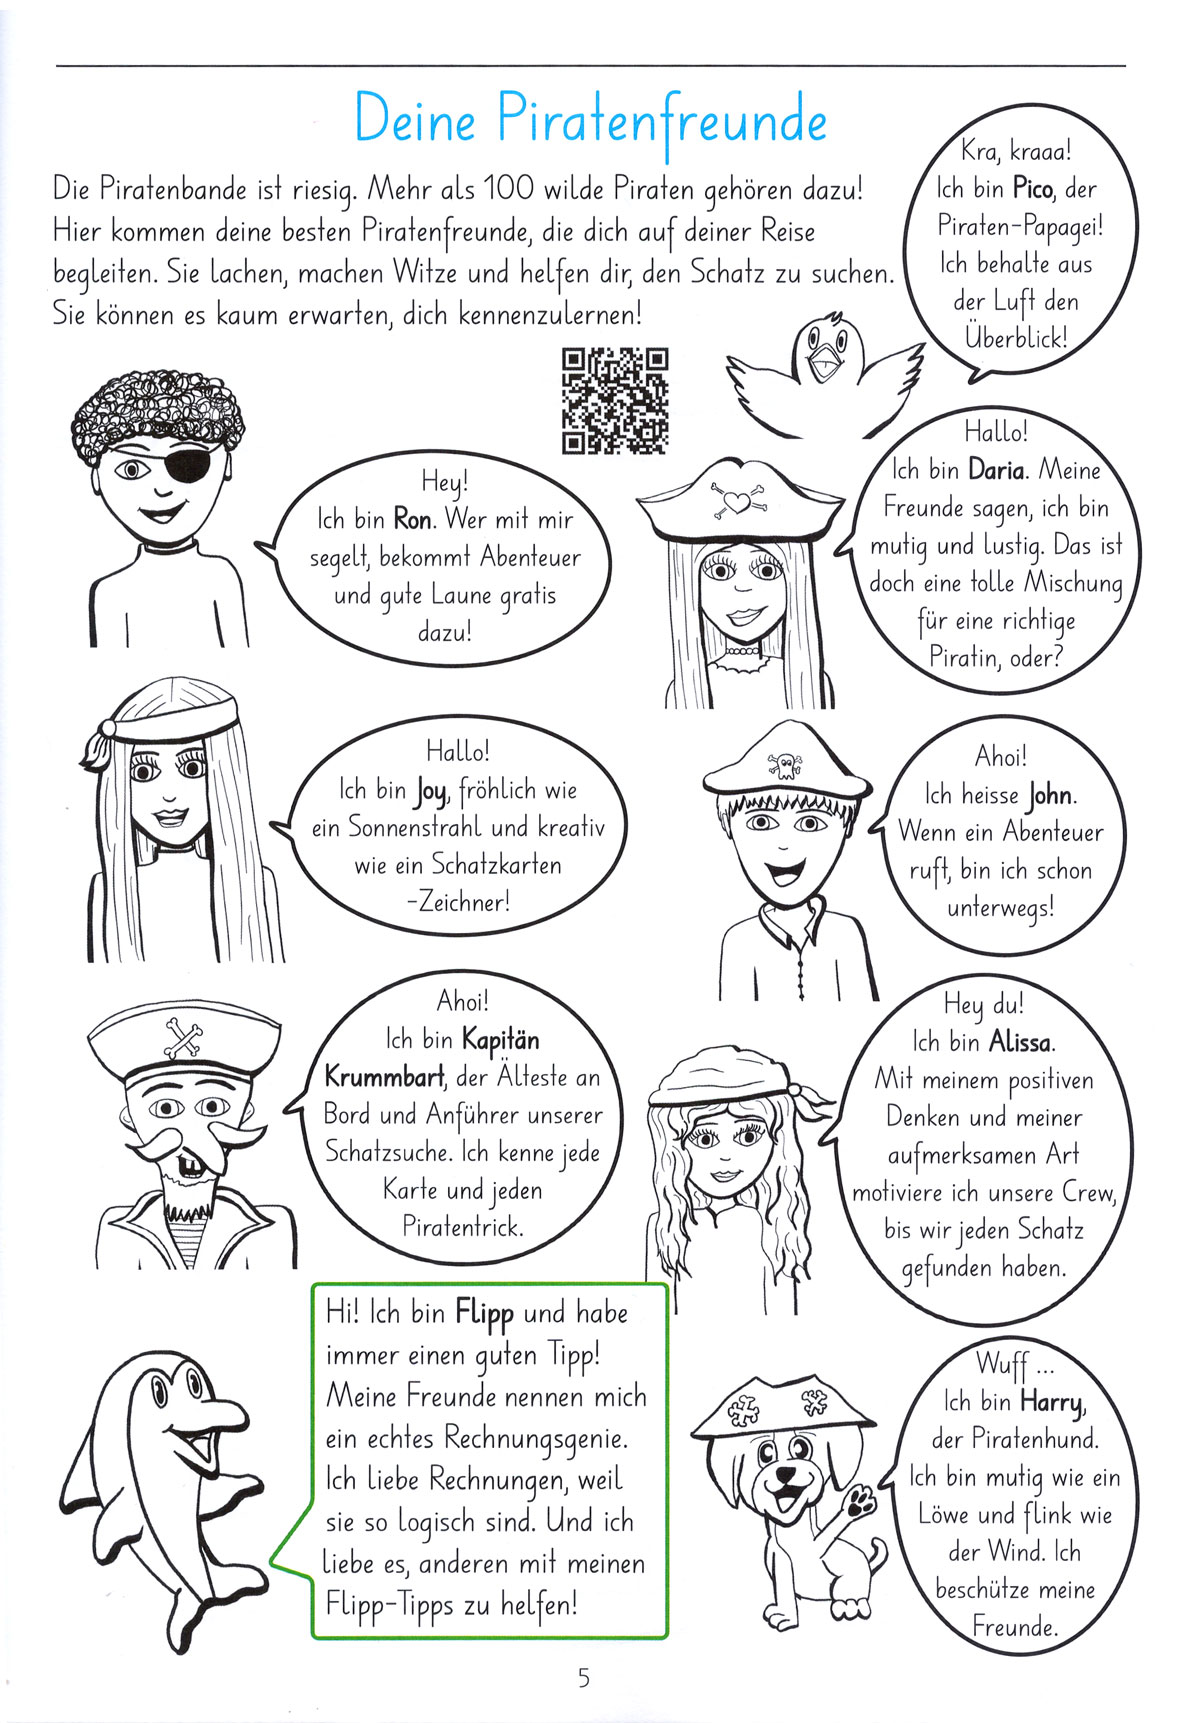 Deine Piratenfreunde
Die Piratenbande ist riesig. Mehr als 100 wilde Piraten gehören dazu!
Hier kommen deine besten Piratenfreunde, die dich auf deiner Reise
begleiten. Sie lachen, machen Witze und helfen dir, den Schatz zu suchen.
Sie können es kaum erwarten, dich kennenzulernen!
Kra, kraaa!
Ich bin Pico, der
Piraten-Papagei!
Ich behalte aus
der Luft den
Überblick!
Hey!
Ich bin Ron. Wer mit mir
segelt, bekommt Abenteuer
und gute Laune gratis
dazu!
Hallo!
Ich bin Daria. Meine
Freunde sagen, ich bin
mutig und lustig. Das ist
doch eine tolle Mischung
für eine richtige
Piratin, oder?
Hallo!
Ich bin Joy, fröhlich wie
ein Sonnenstrahl und kreativ
wie ein Schatzkarten
-Zeichner!
Ahoi!
Ich heisse John.
Wenn ein Abenteuer
ruft, bin ich schon
unterwegs!
Ahoi!
Ich bin Kapitän
Krummbart, der Älteste an
Bord und Anführer unserer
Schatzsuche. Ich kenne jede
Karte und jeden
Piratentrick.
Hey du!
Ich bin Alissa.
Mit meinem positiven
Denken und meiner
aufmerksamen Art
motiviere ich unsere Crew,
bis wir jeden Schatz
gefunden haben.
Hi! Ich bin Flipp und habe
immer einen guten Tipp!
Meine Freunde nennen mich
ein echtes Rechnungsgenie.
Ich liebe Rechnungen, weil
sie so logisch sind. Und ich
liebe es, anderen mit meinen
Flipp-Tipps zu helfen!
Wuff ...
Ich bin Harry,
der Piratenhund.
Ich bin mutig wie ein
Löwe und flink wie
der Wind. Ich
beschütze meine
Freunde.
5